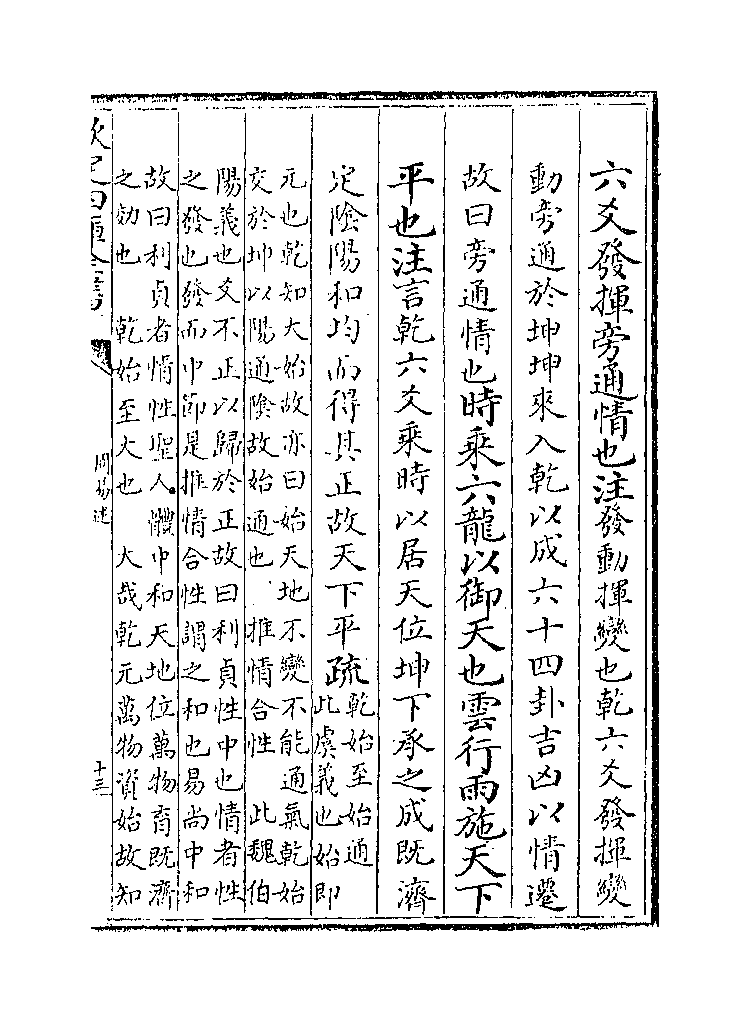 六爻發揮旁通情也注發動揮變也乾六爻發揮變
動旁通於坤坤來入乾以成六十四卦吉凶以情遷
故曰旁通情也時乘六龍以御天也雲行雨施天下
平也注言乾六爻乘時以居天位坤下承之成既濟
定陰陽和均而得其正故天下平疏乾始至始通
此虞義也始即
元也乾知大始故亦曰始天地不變不能通氣乾始
交於坤以陽通陰故始通也 推情合性 此魏伯
陽義也爻不正以歸於正故曰利貞性中也情者性
之發也發而中節是推情合性謂之和也易尚中和
故曰利貞者情性聖人體中和天地位萬物育既濟
之効也 乾始至大也 大哉乾元萬物資始故知
欽定四庫全書
周易述
十三